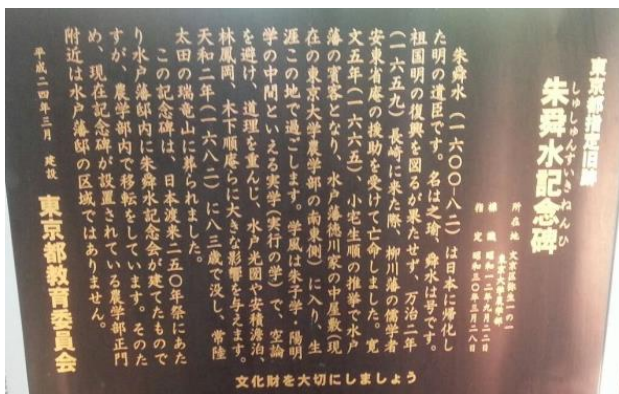 東京都指定旧跡
しゅしゅんすいきねんひ
朱舜水記念碑
所在地 文京区弥生一の一
東京大学農学部
標識 昭和一二年九月二二日
指定 昭和三〇年三月二八日
朱舜水(一六〇〇-八二)は日本に帰化し
た明の遺臣です。名は之瑜、舜水は号です。
祖国明の復興を図るが果たせず、万治二年
(一六五九)長崎に来た際、柳川藩の儒学者
安東省庵の援助を受けて亡命しました。寛
文五年(一六六五)、小宅生順の推挙で水戸
藩の賓客となり、水戸藩徳川家の中屋敷(現
在の東京大学農学部の南東側)に入り、生
涯この地で過ごします。学風は朱子学・陽明
学の中間といえる実学(実行の学)で、空論
を避け、道理を重んじ、水戸光圀や安積澹泊、
林鳳岡、木下順庵らに大きな影響を与えます。
天和二年(一六八二)に八三歳で没し、常陸
太田の瑞竜山に葬られました。
この記念碑は、日本渡来二五〇年祭にあた
り水戸藩邸内に朱舜水記念会が建てたもので
すが、農学部内で移転をしています。そのた
め、現在記念碑が設置されている農学部正門
附近は水戸藩邸の区域ではありません。
平成二四年三月 建設
東京都教育委員会
文化財を大切にしましょう